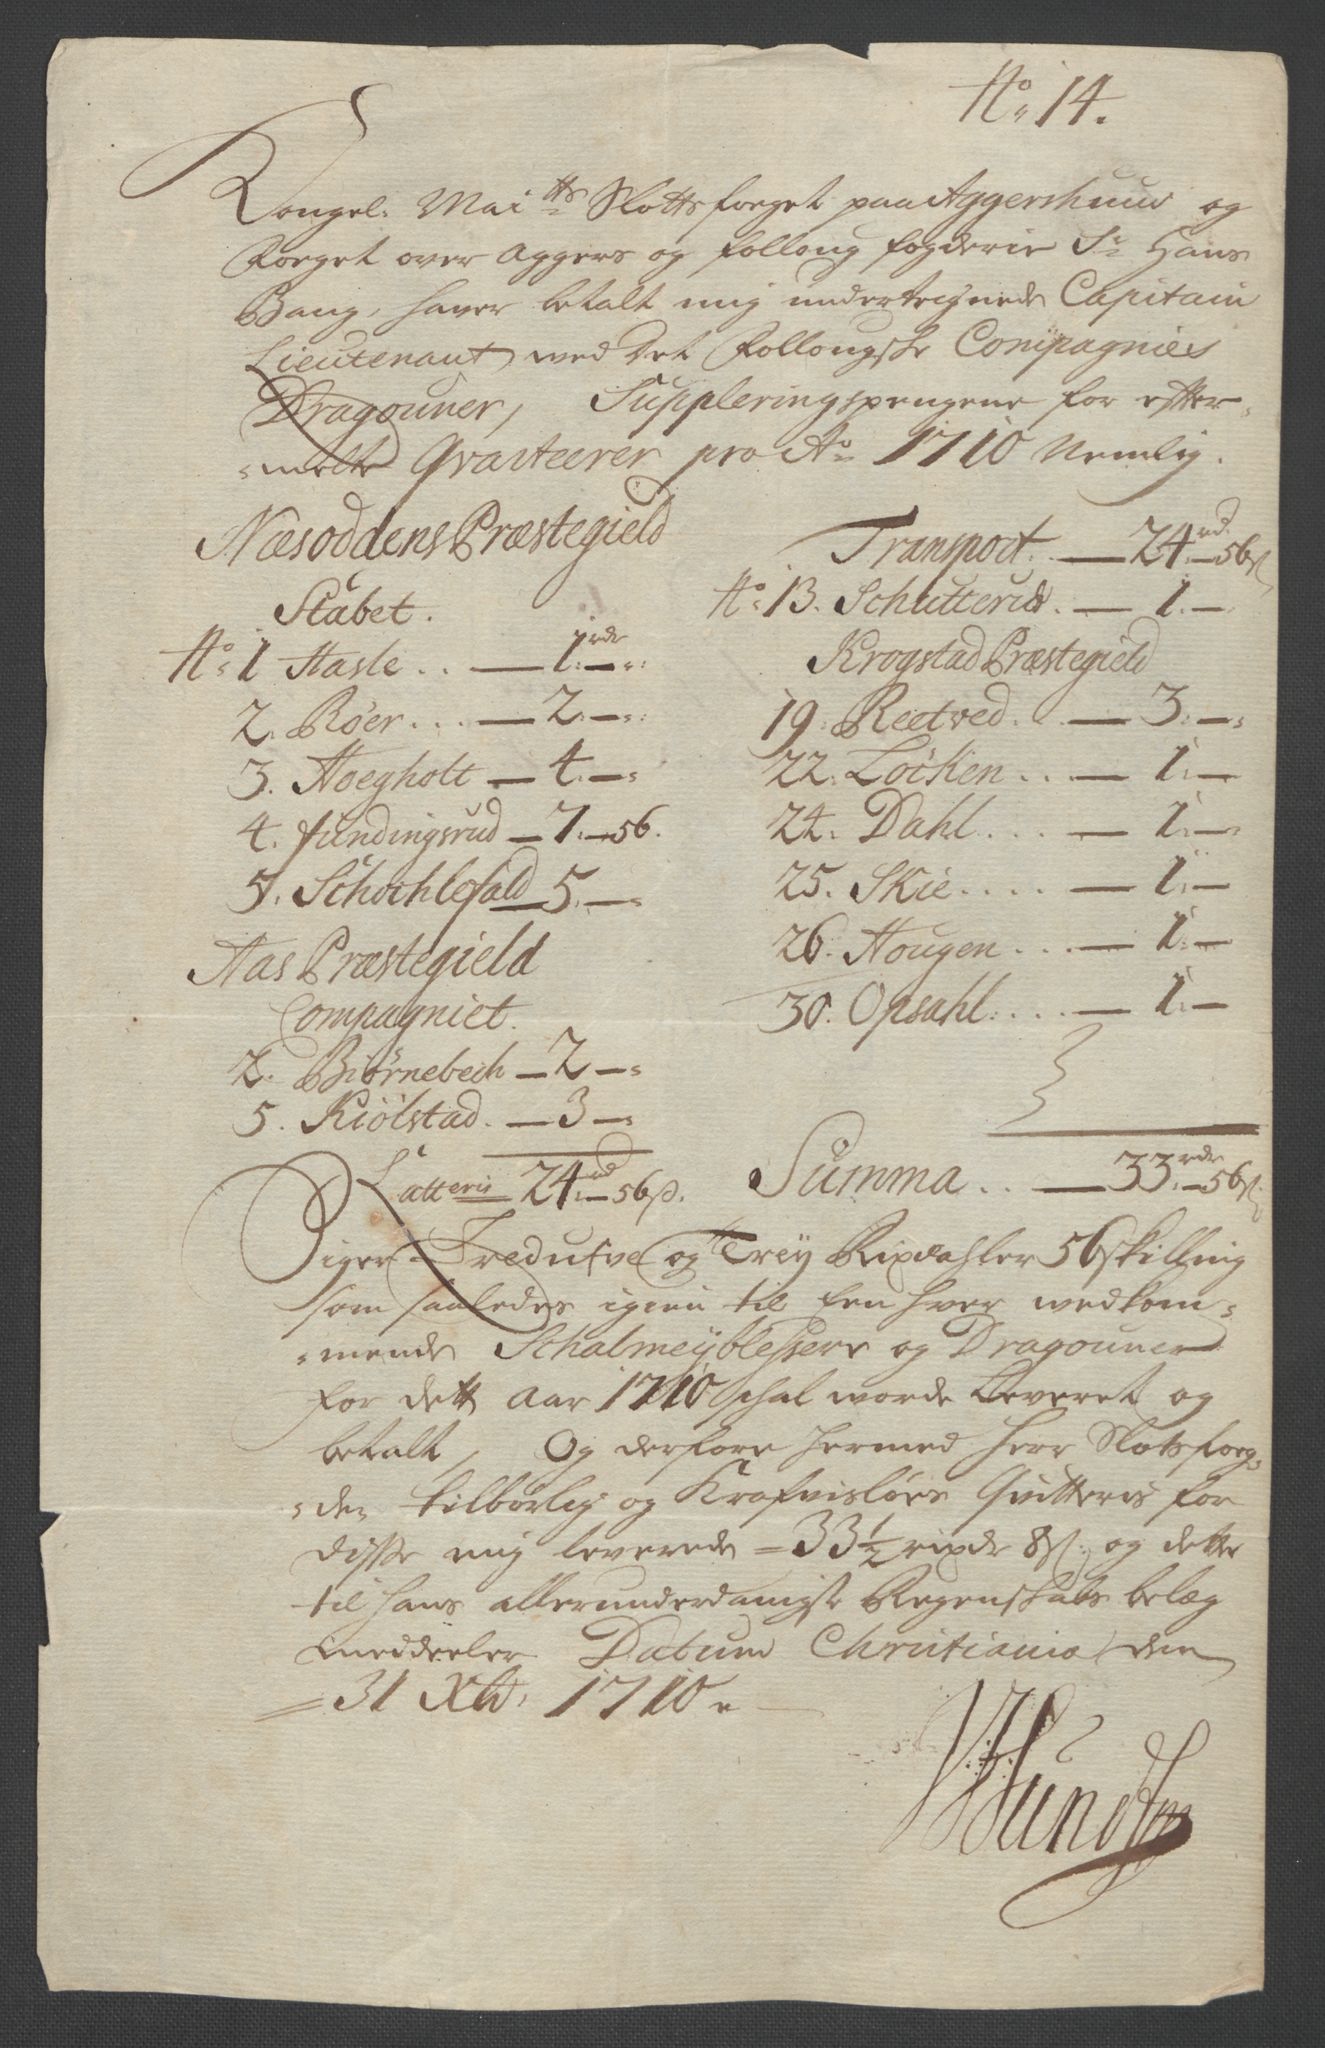 No: 14.
Kongel: Mai tts Slotts foeget paa Aggershuus og
Foeget over Aggers og Folloug fogderie Sr Hans
Bang, haver betalt mig undertegnede Capitain
Lieutenant wed Det Follougske Compagnies
Dragouner, Suppleringspengene for effter=
=melte Qvarteerer pro Ao 1710 Nemlig.
Næsoddens Præstegield
Stabet.
No: 1 Hasle .. — 1 rdr —
2. Röer ... — 2. —
3. Hoegholt — 4. —
4. Fundingsrud — 7. — 56.
5. Schochlefald — 5. —
Aas Præstegield
Compagniet.
2. Biörnebech — 2 —
5. Kiölstad. — 3 —
Latteris 24 rd — 56 ß.
Transport. — 24 rd. — 56 ß
No: 13. Schutterud. — 1. —
Krogstad Præstegield
19. Reetved... — 3. —
22. Löcken... — 1. —
24. Dahl.... — 1. —
25. Skie.... — 1. —
26. Hougen... — 1. —
30. Opsahl.... — 1. —
Summa .. — 33 rdr — 56 ß.
Siger Tredufve og Trey Rixdahler 56 skilling
som saaledes igien til Een hver wedkom=
=mende Schalmeyblessere og Dragouner
for dett Aar 1710 schal worde Leveret og
betalt, Og derfore hermed Herr Slotsfoeg=
=den tilbörlig og Krafvislöes Qvitteris for
disse mig leverede = 33 1/2 rixdr 8 ß: og dette
til hans allerunderdanigste Regenskabs belæg
meddeeler Datum Christiania den
= 31 Xbr: 1710